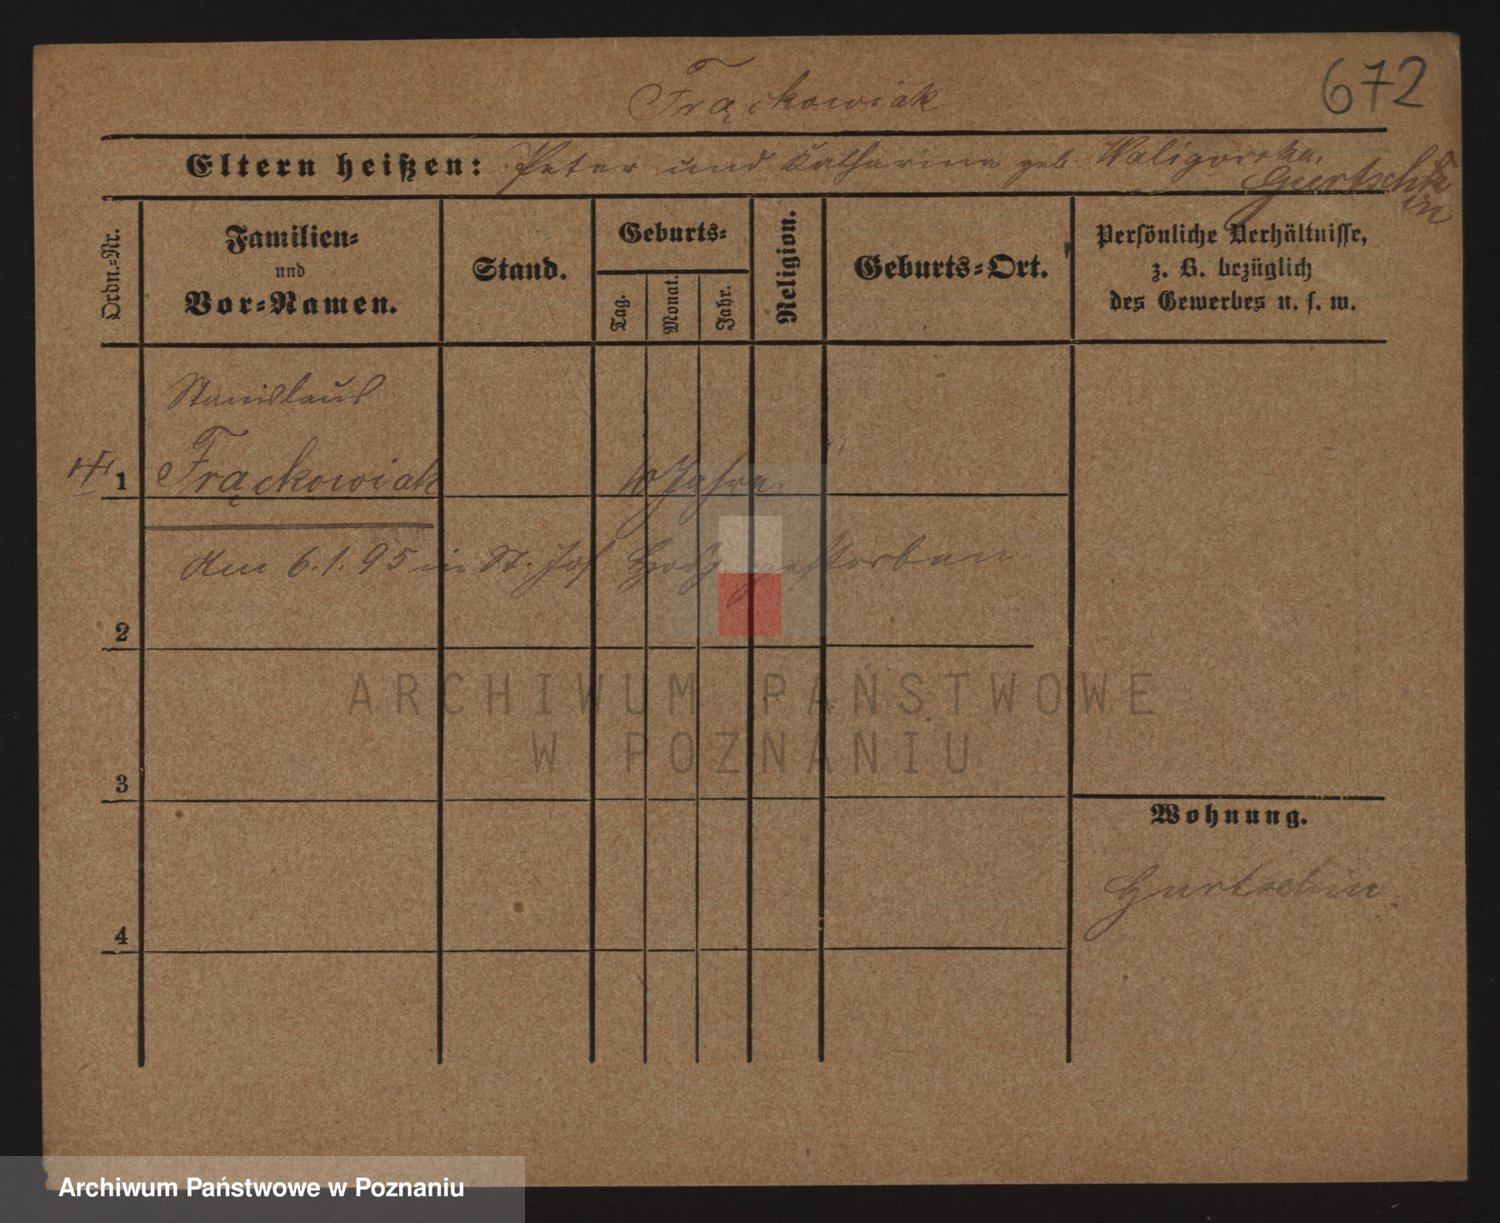 Frąckowiak
672
Eltern heißen: Peter und Catharina geb. Waligorska.
Gurtschin
Ordn.-Nr.
Familien- und Vor-Namen.
Stand.
Geburts-
Tag.
Monat.
Jahr.
Religion.
Geburts-Ort.
Persönliche Verhältnisse,
z. B. bezüglich
des Gewerbes u. s. w.
Stanislaus
1 Frąckowiak 10 Jahre.
Am 6.1.95 in St. Jos. gestorben
2
3
4
Wohnung.
Gurtschin.
ARCHIWUM PAŃSTWOWE
W POZNANIU
Archiwum Państwowe w Poznaniu